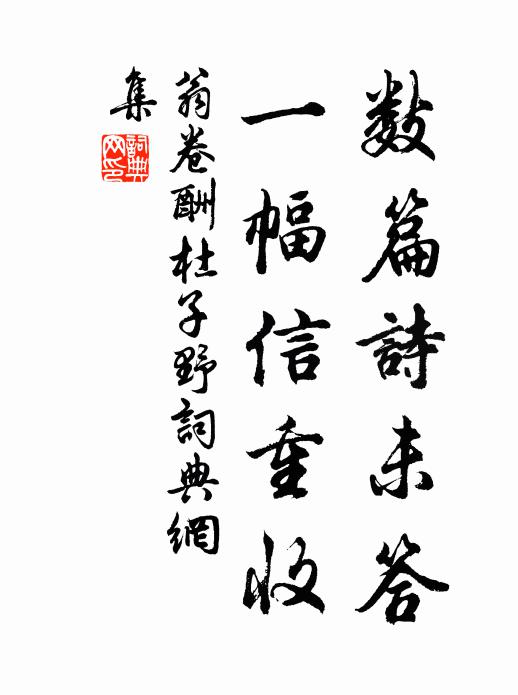 数篇詩未答
一幅信重收
翁卷酬杜子野詞典網
集
詞典
网印